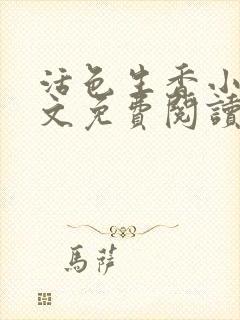 活色生香小
文免費閱讀
馬薩